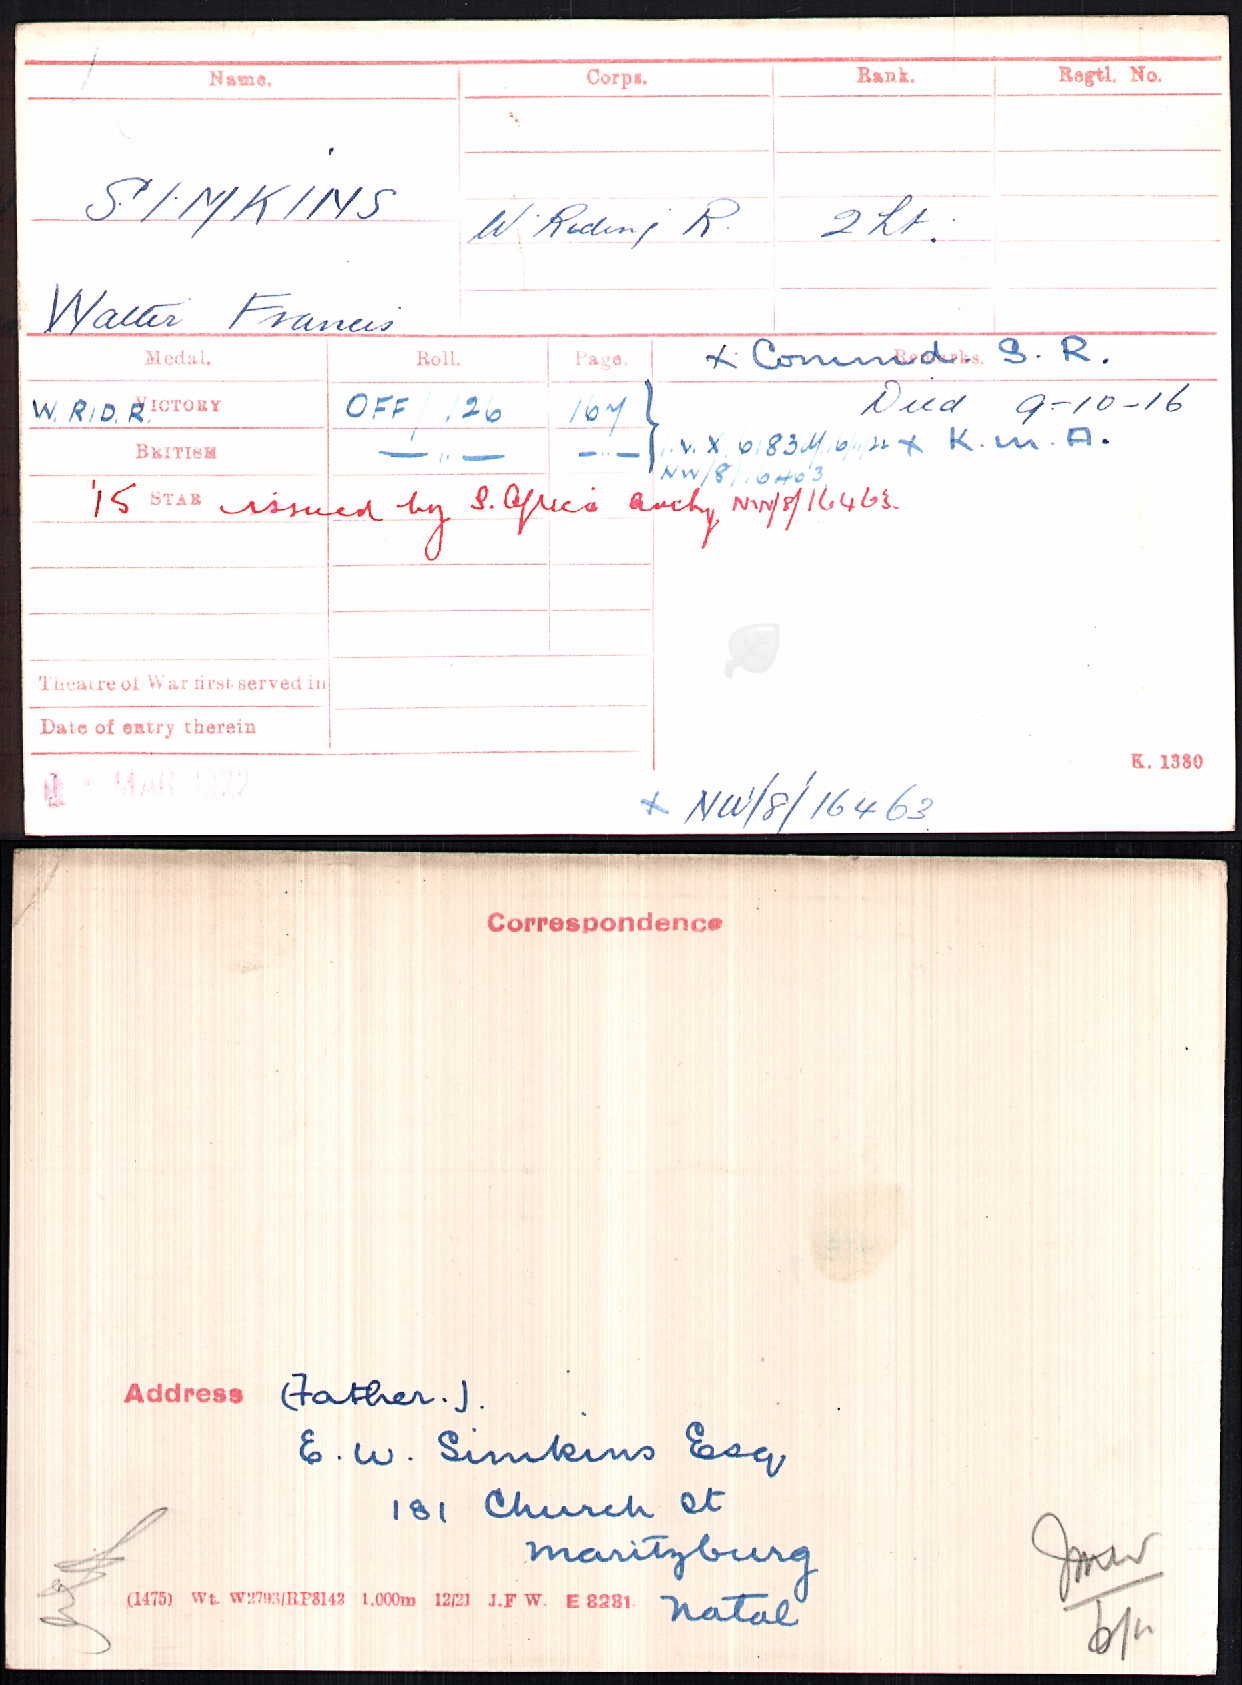 Name. Corps. Rank. Regtl. No.
SIMKINS
W. Riding R. 2 Lt.
Walter Francis
Medal. Roll. Page. Remarks.
x Commd. S. R.
W. RID. R. VICTORY OFF/126 167
Died 9-10-16
BRITISH — " — — " —
x K. in. A.
'15 STAR issued by S. Africa NW/8/16463.
Theatre of War first served in
Date of entry therein
K. 1380
MAR 1922
x NW/8/16463
Correspondence
Address (Father.).
E. W. Simkins Esq
181 Church St
Maritzburg
(1475) Wt. W2793/RP8142 1,000m 12/21 J.F W. E 8281. Natal